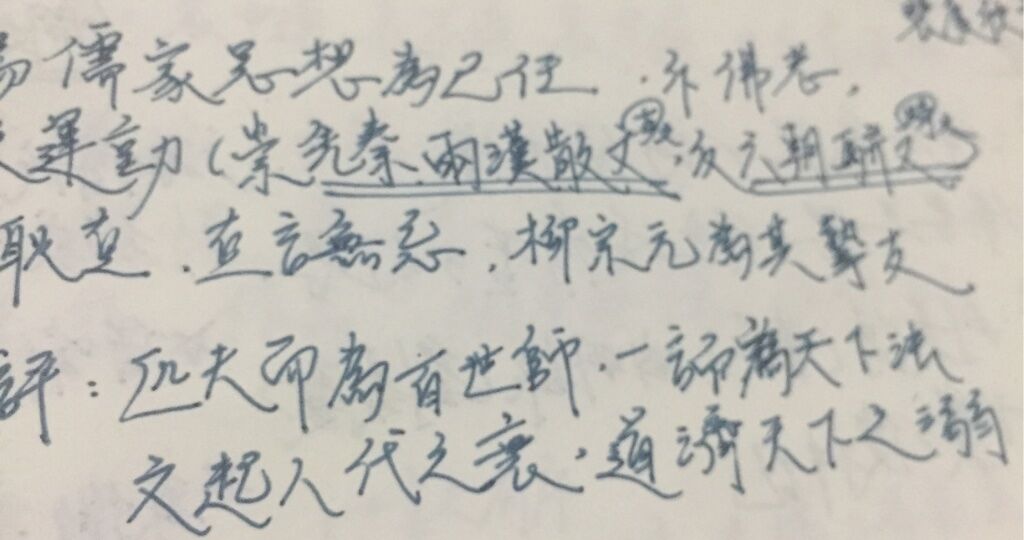 儒家思想為己任．斥佛老，
運動(崇先秦．兩漢散文，反六朝駢文)
耿直．直言無忌，柳宗元為其摯友
評：匹夫而為百世師．一言而為天下法
文起八代之衰．道濟天下之溺